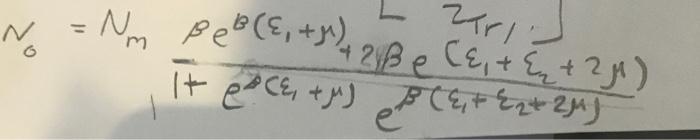 2Tr/.
N₀ = Nₘ βe^β(ε₁+μ) + 2βe (ε₁+ε₂+2μ)
1+ e^β(ε₁+μ) e^β(ε₁+ε₂+2μ)